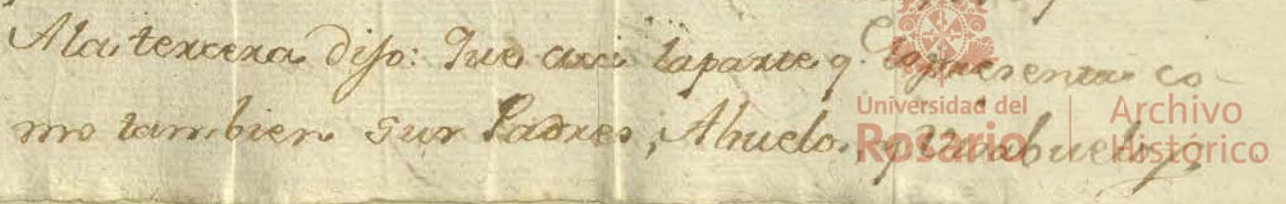 A la tercera dijo: Que asi la parte q.e lo presenta co-
mo tambien sus Padres, Abuelos, y Visabuelos
Universidad del
Rosario
Archivo
Histórico